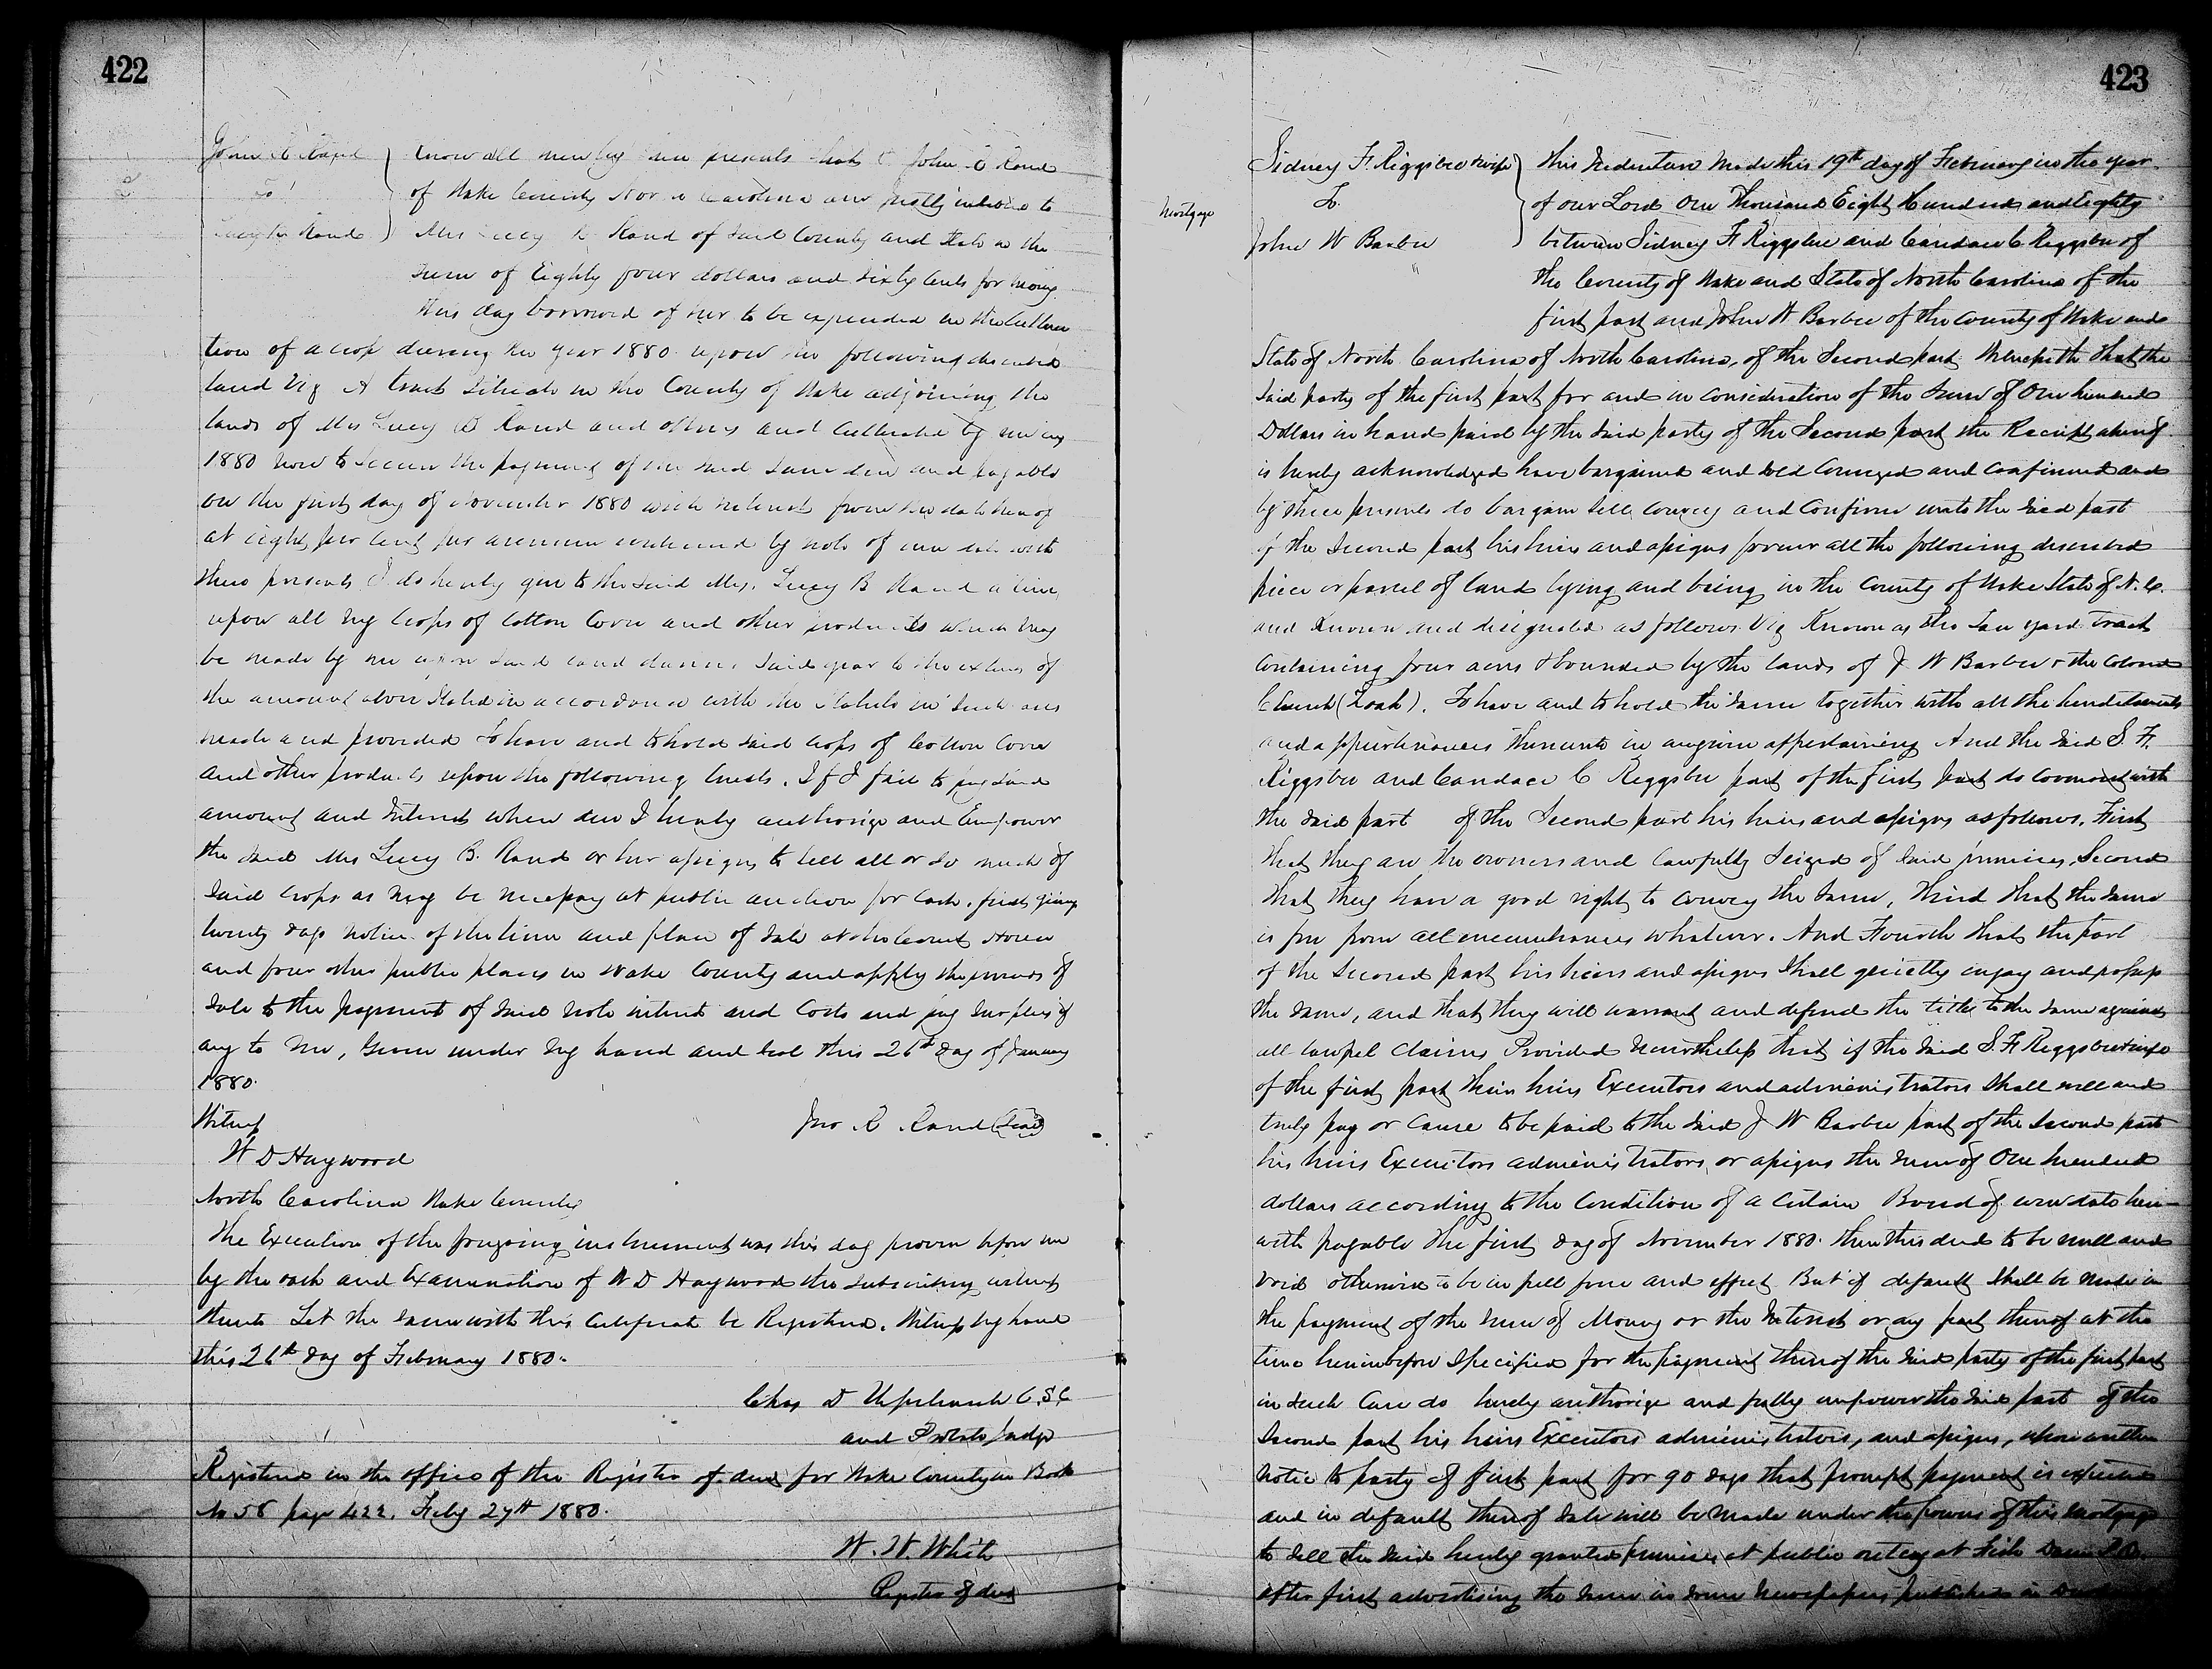 422
John R Rand
To
Lucy B. Rand
Know all men by these presents that I John R Rand
of Wake County North Carolina am justly indebted to
Mrs Lucy B Rand of said County and State in the
sum of Eighty four dollars and sixty cents for money
this day borrowed of her to be expended in the cultiva
tion of a crop during the year 1880 upon the following described
land Viz A tract situate in the County of Wake adjoining the
lands of Mrs Lucy B Rand and others and cultivated by me in
1880 now to secure the payment of the said sum due and payable
on the first day of November 1880 with interest from the date hereof
at eight per cent per annum evidenced by note of even date with
these presents I do hereby give to the said Mrs. Lucy B Rand a lien
upon all my crops of Cotton Corn and other products which may
be made by me upon said land during said year to the extent of
the amount above stated in accordance with the Statute in such cases
made and provided To have and to hold said crops of Cotton Corn
and other products upon the following trusts. If I fail to pay said
amount and Interest when due I hereby authorize and Empower
the said Mrs Lucy B. Rand or her assigns to sell all or so much of
said crops as may be necessary at public auction for cash, first giving
twenty days notice of the time and place of sale at the Court House
and four other public places in Wake County and apply the proceeds of
sale to the payment of said note interest and Costs and pay surplus if
any to me, Given under my hand and seal this 26th day of January
1880.
Witness
Jno R Rand (Seal)
W D Haywood
North Carolina Wake County
The Execution of the foregoing instrument was this day proven before me
by the oath and Examination of W D Haywood the subscribing witness
thereto Let the same with this Certificate be Registered. Witness my hand
this 26th day of February 1880.
Chas D Upchurch C.S.C
and Probate Judge
Registered in the office of the Register of deeds for Wake County in Book
No 58 page 422. Feby 27th 1880.
W. W. White
Register of deeds
423
Mortgage
Sidney F. Riggsbee & wife
To
John W Barbee
This Indenture made this 19th day of February in the year
of our Lord One Thousand Eight Hundred and Eighty
between Sidney F Riggsbee and Candace C Riggsbee of
the County of Wake and State of North Carolina of the
first part and John W Barbee of the County of Wake and
State of North Carolina of North Carolina, of the Second part Witnesseth that the
said party of the first part for and in consideration of the sum of One hundred
Dollars in hand paid by the said party of the Second part the Receipt whereof
is hereby acknowledged have bargained and sold Conveyed and confirmed and
by these presents do bargain sell convey and confirm unto the said part
of the second part his heirs and assigns forever all the following described
piece or parcel of land lying and being in the County of Wake State of N.C.
and known and designated as follows Viz Known as the Tan yard tract
containing four acres & bounded by the lands of J W Barbee & the Colored
Church. To have and to hold the same together with all the hereditaments
and appurtenances thereunto in anywise appertaining And the said S. F.
Riggsbee and Candace C Riggsbee part of the first part do covenant with
the said part of the Second part his heirs and assigns as follows. First
that they are the owners and lawfully seized of said premises, Second
that they have a good right to convey the same, Third that the same
is free from all encumbrances whatever. And Fourth that the part
of the second part his heirs and assigns shall quietly enjoy and possess
the same, and that they will warrant and defend the title to the same against
all lawful claims Provided nevertheless that if the said S. F Riggsbee & wife
of the first part their heirs Executors and administrators shall well and
truly pay or cause to be paid to the said J W Barbee part of the second part
his heirs Executors administrators or assigns the sum of One hundred
dollars according to the Condition of a certain Bond of even date here-
with payable the first day of November 1880. then this deed to be null and
void otherwise to be in full force and effect But if default shall be made in
the payment of the sum of Money or the Interest or any part thereof at the
time hereinbefore specified for the payment thereof the said party of the first part
in such case do hereby authorize and fully empower the said part of the
second part his heirs Executors administrators, and assigns, upon written
notice to party of first part for 90 days that prompt payment is expected
and in default thereof sale will be made under the powers of this mortgage
to sell the said hereby granted premises at public outcry at Fish Dam
after first advertising the same in some Newspaper published in